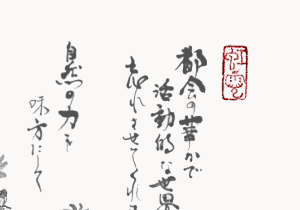 都会の華かで
活動的な世界
忘れさせてくれ
自然の力を
味方にして